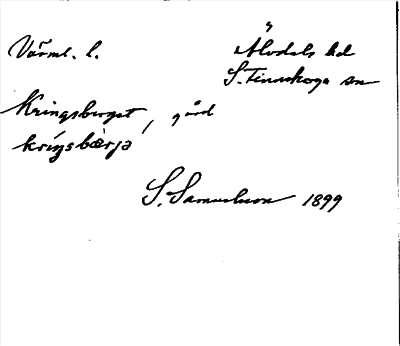 Värml. l.
Älvdals hd
S. Finnskoga sn
Kringsberget, gård
kriŋsbærjə
S. Samuelsson 1899